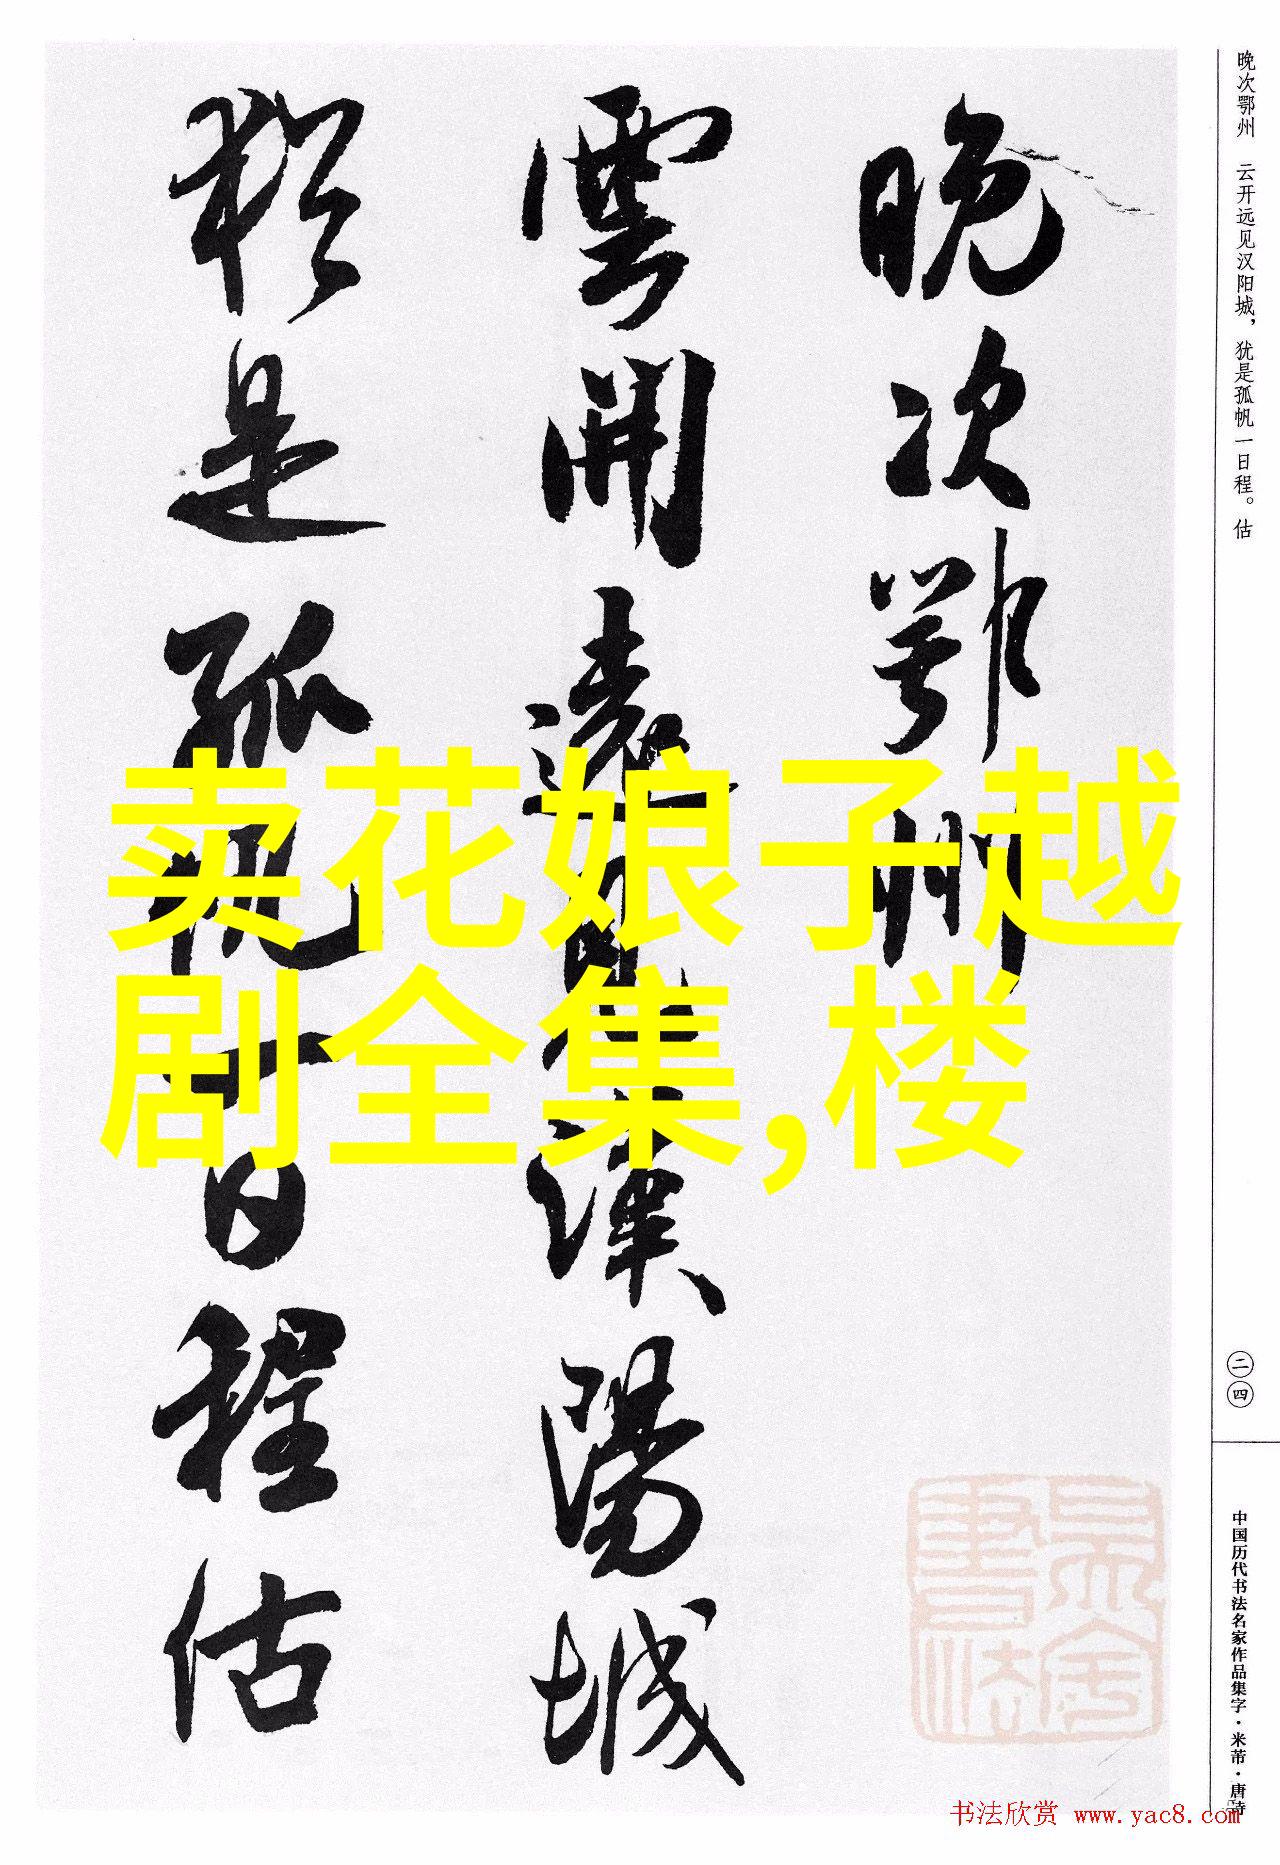 晚次鄂州
雲開遠見漢陽城
猶是孤帆一日程估
晚次鄂州 云开远见汉阳城，犹是孤帆一日程。估
二四
中国历代书法名家作品集字·米芾·唐诗
卖花娘子越
剧全集,楼
书法欣赏 www.yac8.com